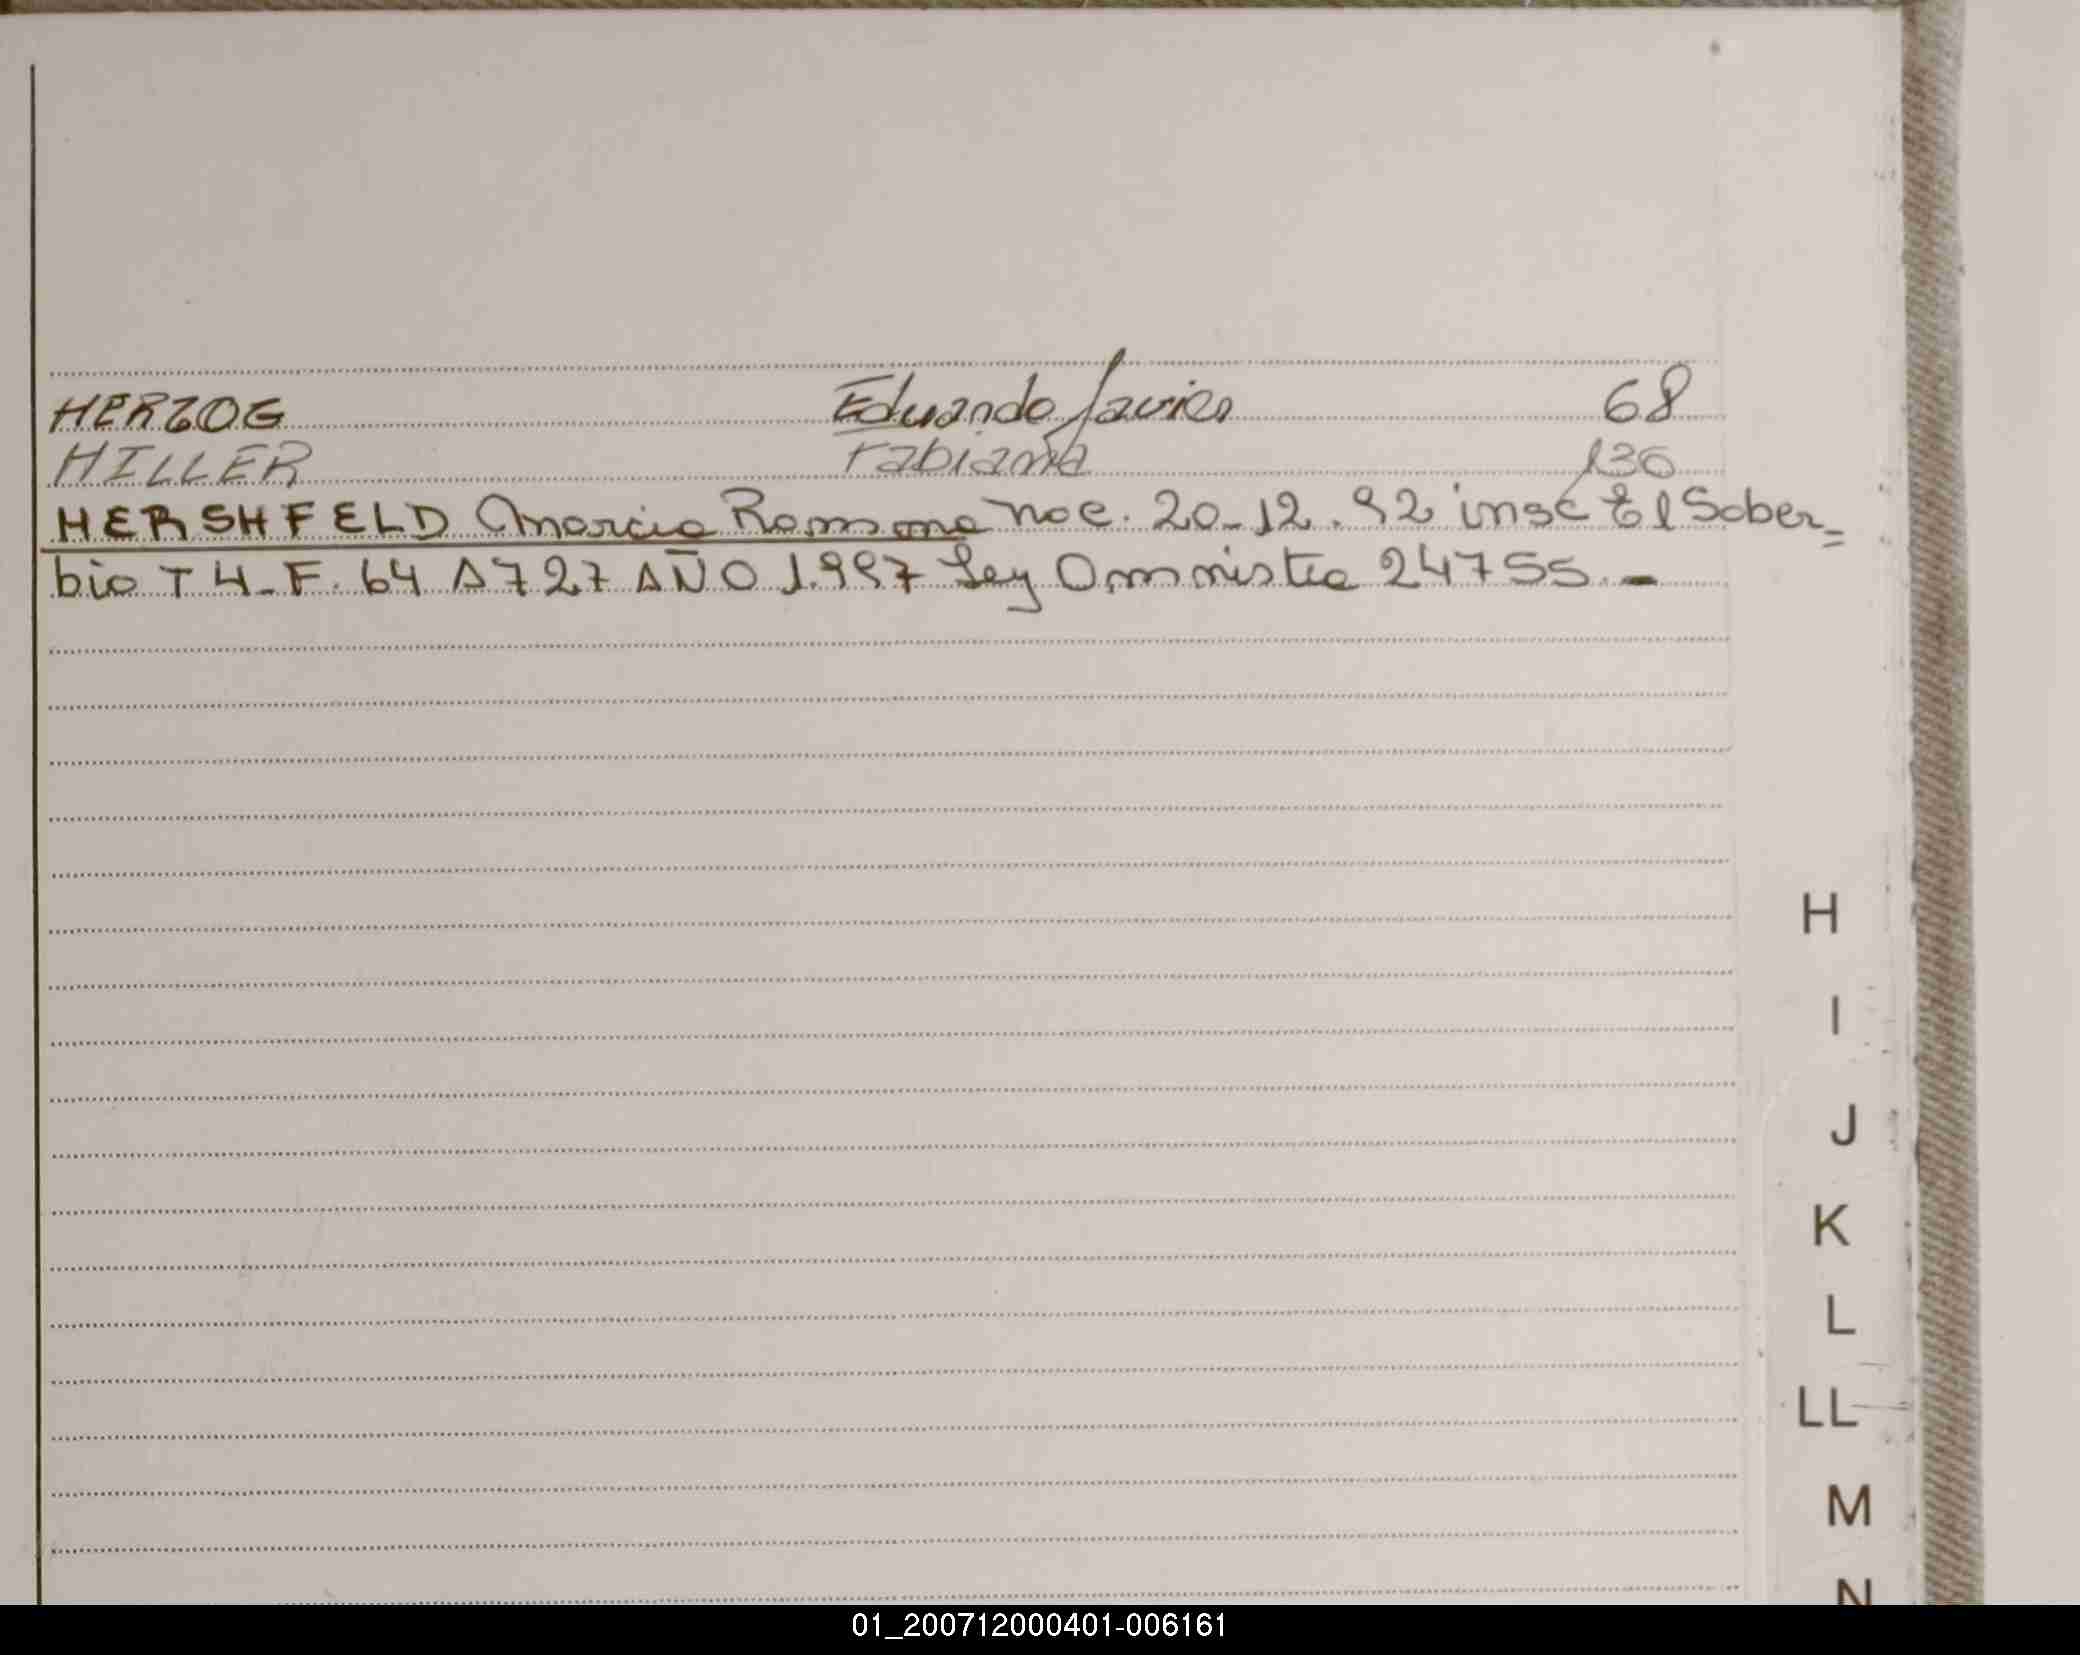 HERZOG Eduardo Javier 68
HILLER Fabiana 130
HERSHFELD Marcia Ramona nac. 20-12.92 insc El Sober=
bio T 4-F. 64 A 727 AÑO 1.997 Ley Amnistia 24755.-
H
I
J
K
L
LL
M
N
01_200712000401-006161